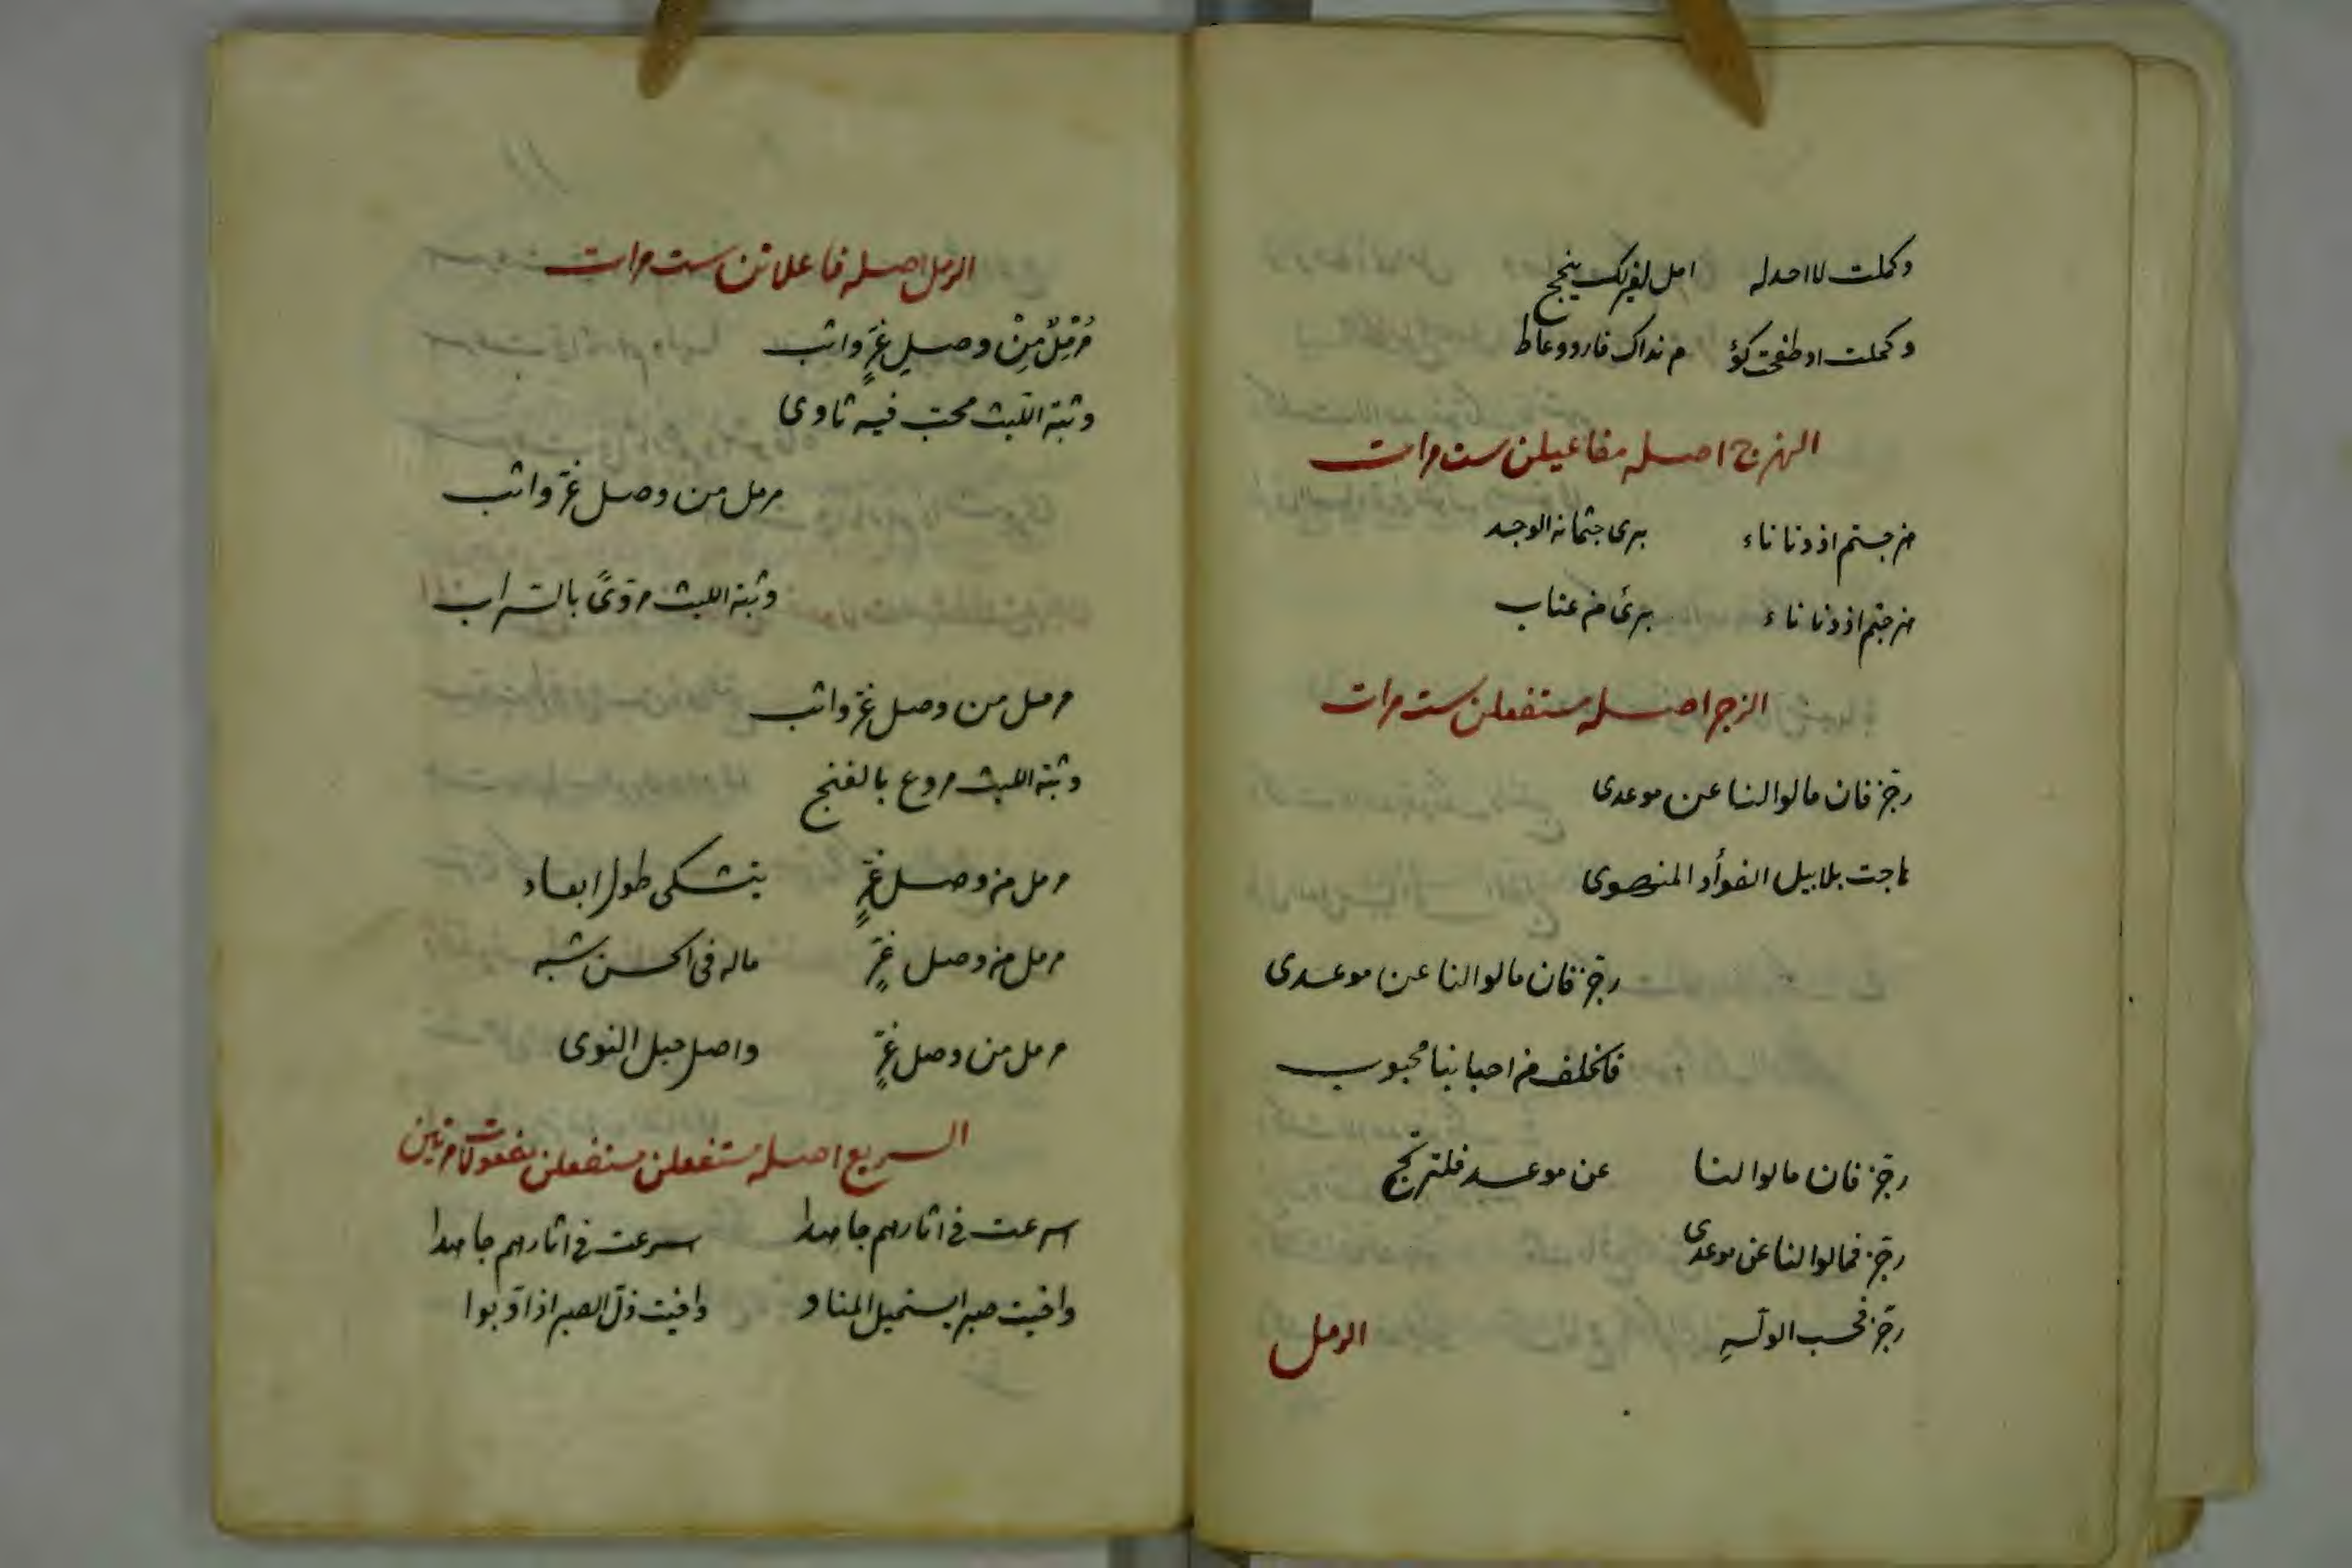 وكملت لا احد له امل لغيرك ينجح
وكملت اذ طفحت كؤ م نداك فارد وعاط
الهزج اصله مفاعيلن ست مرات
هزجتم اذ دنا ناء برى جثمانه الوجد
هزجتم اذ دنا ناء برئ من عتاب
الرجز اصله مستفعلن ست مرات
رجز فان مالوا لنا عن موعدى
هاجت بلابيل الفوأد المنضوى
رجز فان مالوا لنا عن موعدى
فالخلف من احبابنا محبوب
رجز فان مالوا لنا عن موعد فلترتج
رجز فمالوا لنا عن موعدى
رجز فحسب الوله
الرمل
الرمل اصله فاعلاتن ست مرات
مُرْمِلٌ مِنْ وصلِ غِرٍّ واثب
وثبة الليث محب فيه ثاوى
مرمل من وصل غر واثب
وثبة الليث مروىً بالشراب
مرمل من وصل غر واثب
وثبة الليث مروع بالغنج
مرمل من وصل غرٍّ يتشكى طول ابعاد
مرمل من وصل غرٍّ ماله فى الحسن شبه
مرمل من وصل غرٍّ واصل حبل النوى
السريع اصله مستفعلن مستفعلن مفعولات مرتين
اسرعت فى اثارهم جاهدا اسرعت فى اثارهم جاهدا
وافيت صبرا يستميل المناد وافيت ذل الصبر اذ اوبوا